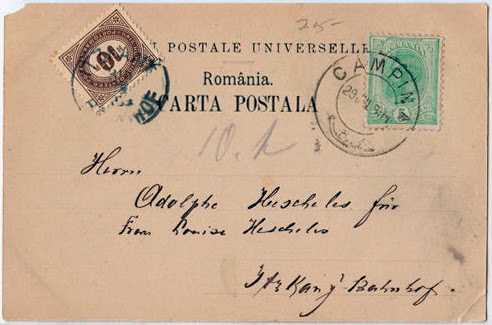 25-
L POSTALE UNIVERSELLE
România.
CARTA POSTALA
10
HOF
ROMANIA
5
CAMPINA
Herrn
Adolphe Hescheles für
Frau Louise Hescheles
Bahnhof.